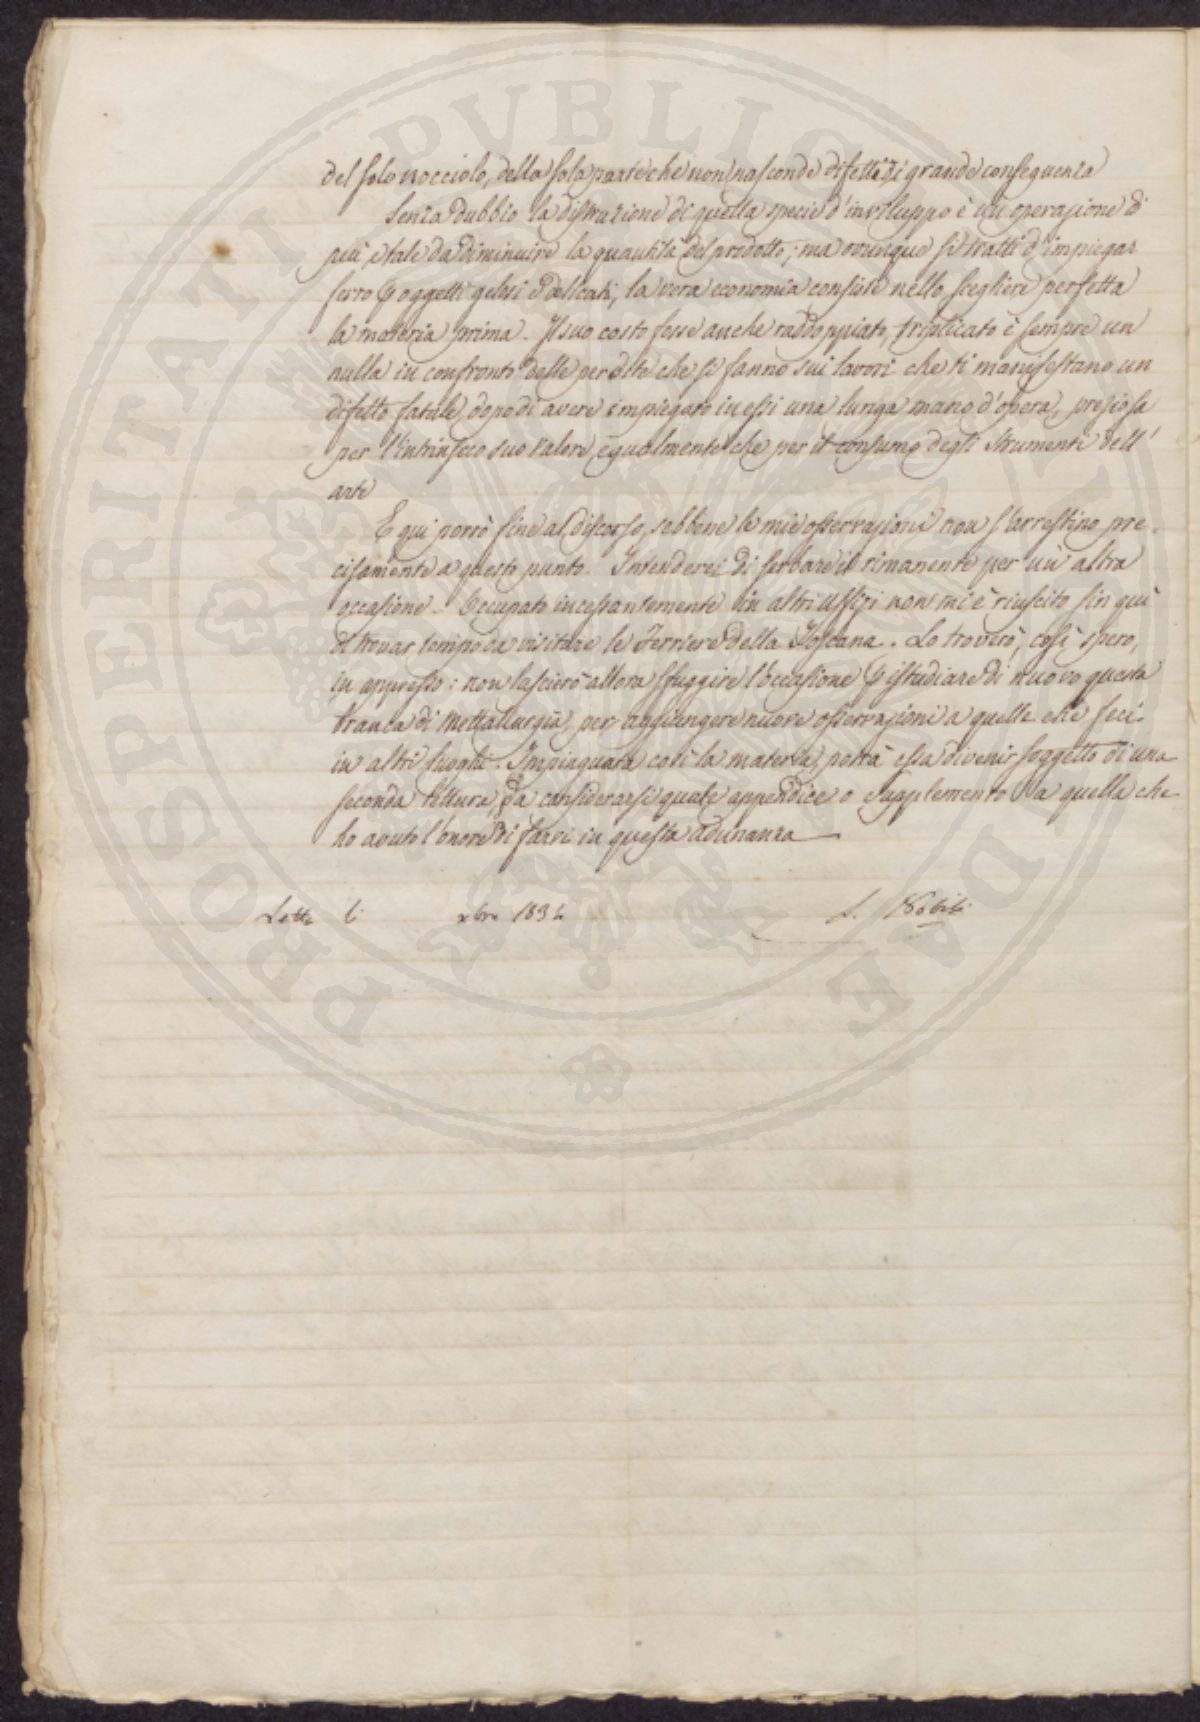 del solo nocciolo, della sola parte che non nasconde difetti di grande conseguenza
Senza dubbio la distruzione di quella specie d'inviluppo è un operazione di
più, e tale da diminuire la quantità del prodotto; ma ovunque si tratti d'impiegar
ferro p oggetti gelosi e delicati, la vera economia consiste nello scegliere perfetta
la materia prima. Il suo costo fosse anche raddoppiato, triplicato è sempre un
nulla in confronto delle perdite che si fanno sui lavori che ti manifestano un
difetto fatale dopo di avere impiegato in essi una lunga mano d'opera, preziosa
per l'intrinseco suo valore, egualmente che per il consumo degli strumenti dell'
arte
E qui porrò fine al discorso, sebbene le mie osservazioni non s'arrestino pre-
cisamente a questo punto. Intenderei di serbare il rimanente per un' altra
occasione. Occupato incessantemente in altri uffizi non mi è riuscito fin quì
di trovar tempo da visitare le Ferriere della Toscana. Lo troverò, così spero,
in appresso: non lascierò allora sfuggire l'occasione p istudiare di nuovo questa
branca di mettallurgia, per aggiungere nuove osservazioni a quelle che feci
in altri luoghi. Impinguata così la materia, potrà essa divenir soggetto di una
seconda lettura, da considerarsi quale appendice o supplemento a quella che
ho avuto l'onore di farvi in questa adunanza
Letta li xbre 1834 L. Nobili
PROSPERITATI PUBLICAE